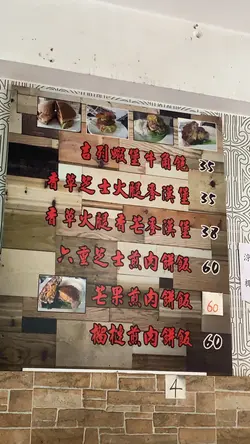 吉列蝦堡牛角飽 35
香草芝士火腿麥漢堡 35
香草火腿香芒麥漢堡 38
六重芝士煎肉餅飯 60
芒果煎肉餅飯 60
榴槤煎肉餅飯 60
4